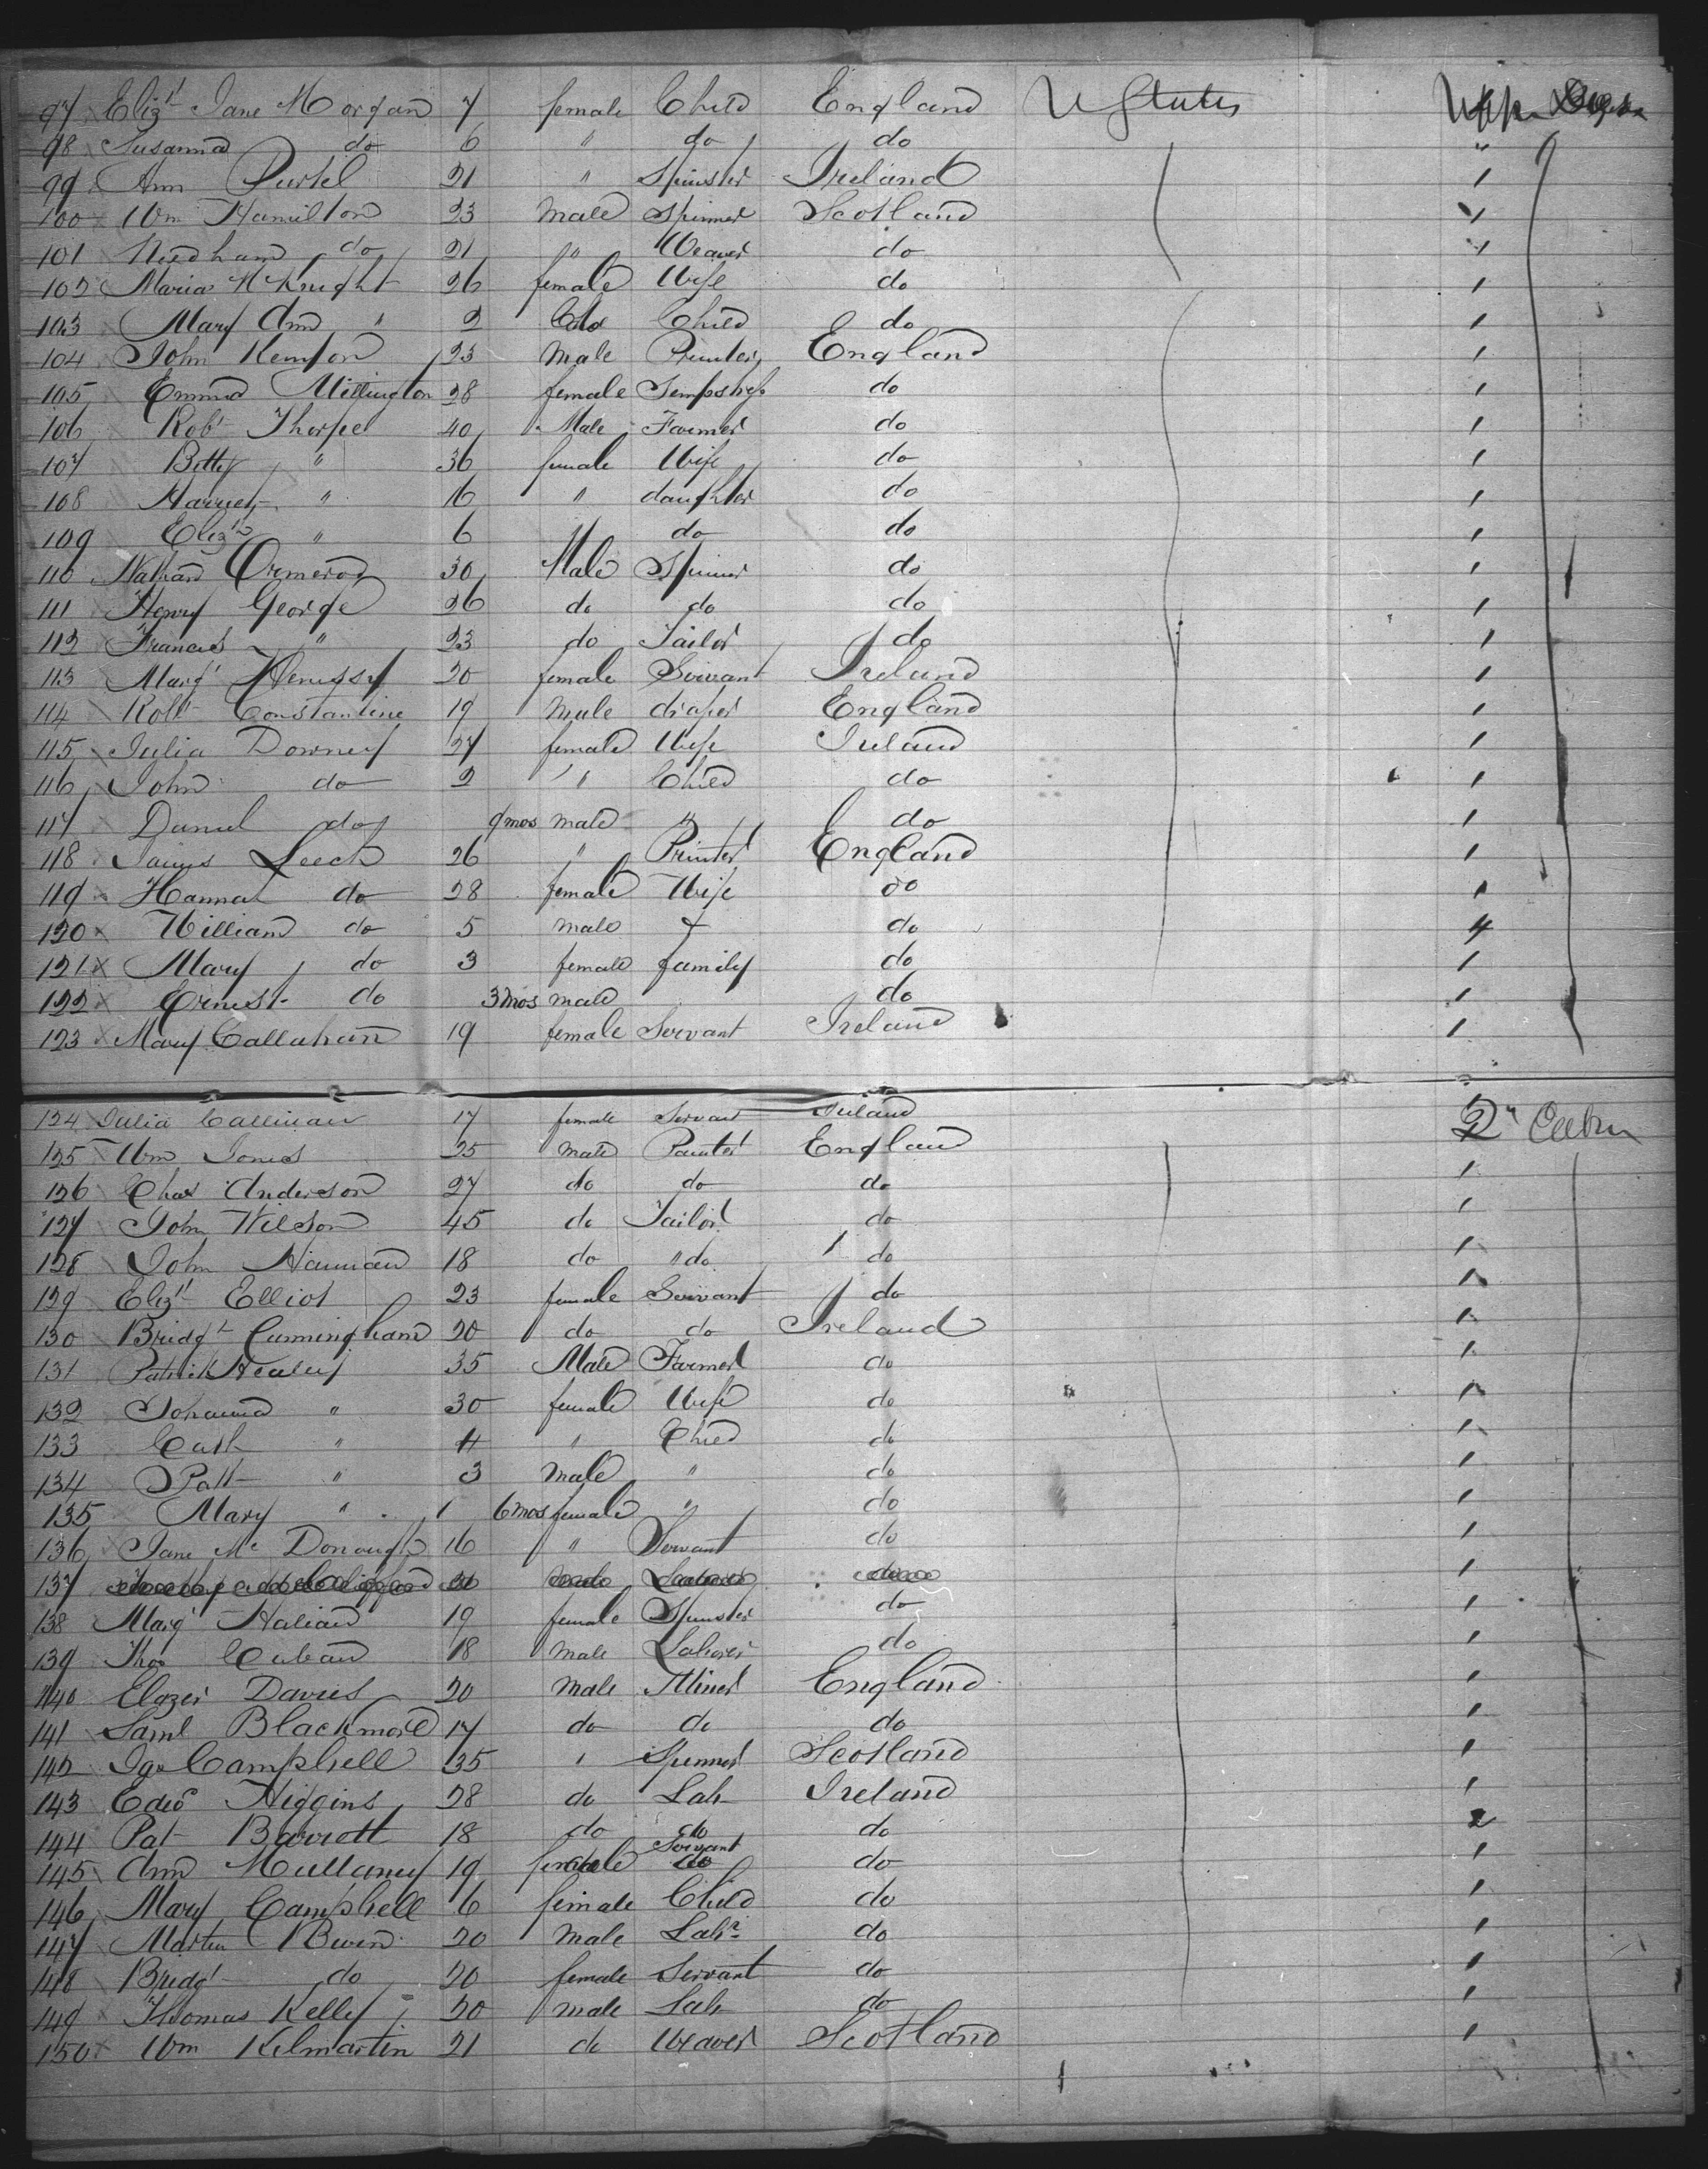 97 Eliz^t Jane Morgan 7 female Child England U States
98 Susanna do 6 " do do "
99 Ann Purtel 21 " Spinster Ireland
100 Wm Hamilton 23 male Spinner Scotland
101 Needham do 21 " Weaver do
102 Maria McKnight 26 female Wife do
103 Mary Ann " 2 Child do
104 John Kempon 23 male Printer England
105 Emma Millington 28 female do
106 Robt Thorpe 40 Male Farmer do
107 Betty " 36 female Wife do
108 Harriet " 16 " daughter do
109 Eliz^h " 6 do do
110 Nathan Ormerod 30 Male Spinner do
111 Henry George 26 do do do
112 Frances " 23 do Tailor do
113 Marg^t Henessy 20 female Servant Ireland
114 Robt Constantine 19 male draper England
115 Julia Downey 27 female Wife Ireland
116 John do 2 " Child do
117 Daniel do 9 mos male " do
118 James Leech 26 " Printer England
119 Hannah do 28 female Wife do
120 William do 5 male & do
121 Mary do 3 female family do
122 Ernest do 3 mos male do
123 Mary Callahan 19 female Servant Ireland
124 Julia Callinan 17 female Servant Ireland 2^n Cabin
125 Wm Jones 25 male Painter England
126 Chas Anderson 27 do do do
127 John Wilson 45 do Tailor do
128 John Hannan 18 do " do do
129 Eliz^t Elliot 23 female Servant do
130 Bridg^t Cunningham 20 do do Ireland
131 Patrick Healey 35 Male Farmer do
132 Johanna " 30 female Wife do
133 Cath " 4 " Child do
134 Patt " 3 male " do
135 Mary " 1 6 mos female " do
136 Jane Mc Donough 16 " Servant do
137
138 Marg^t Halian 19 female Spinster do
139 Thos Cuban 18 male Laborer do
140 Elazer Davies 20 male Miner England
141 Saml Blackmore 17 do do do
142 Jas Campbell 35 Spinner Scotland
143 Edw^d Higgins 28 do Lab Ireland
144 Pat Barrett 18 do do do
145 Ann Mullaney 19 female Servant do
146 Mary Campbell 6 female Child do
147 Martin Bwin 20 male Lab^r do
148 Bridg^t do 20 female Servant do
149 Thomas Kelly 20 male Lab do
150 Wm Kilmartin 21 do Weaver Scotland